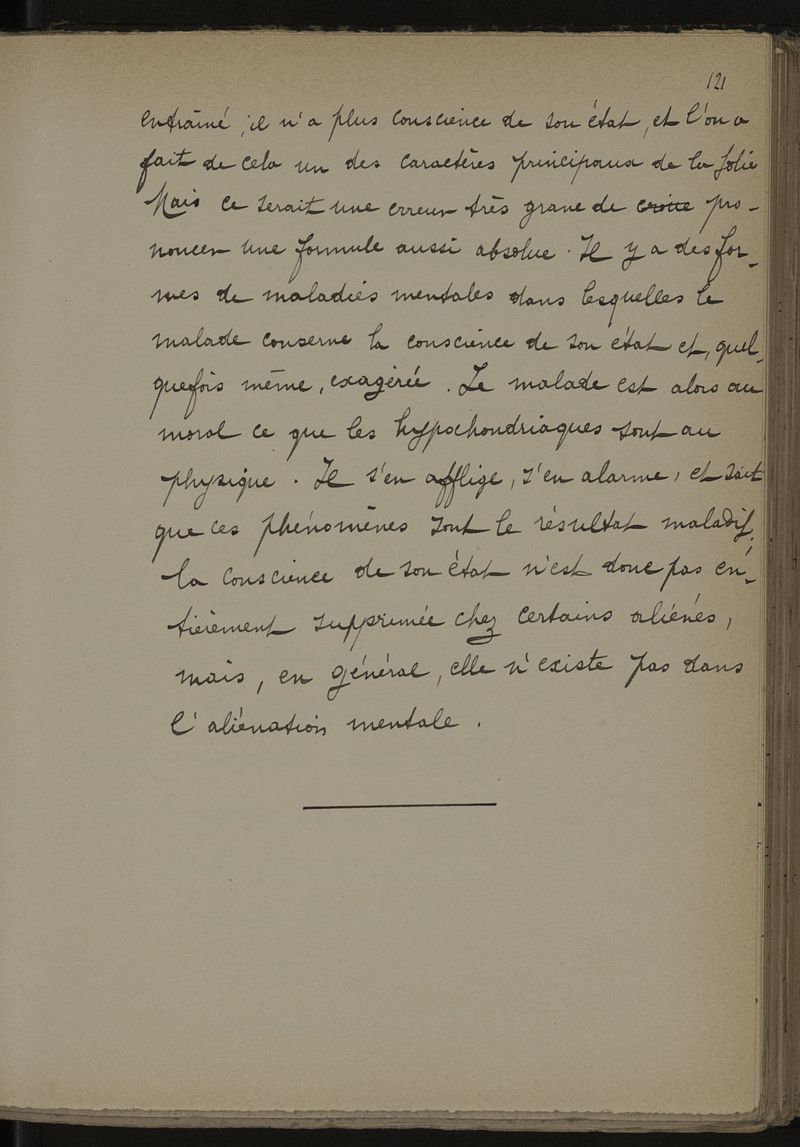 121
entraîné, il n'a plus conscience de son état, et l'on a
fait de cela un des caractères principaux de la folie
Mais ce serait une erreur très grave de croire pro-
noncer une formule aussi absolue. Il y a des for-
mes de maladies mentales dans lesquelles le
malade conserve la conscience de son état et, quel-
quefois même, exagérée. Le malade est alors au
moral ce que les hypochondriaques sont au
physique. Il s'en afflige, s'en alarme, et sait
que ces phénomènes sont le résultat maladif.
la conscience de son état n'est donc pas en-
tièrement supprimée chez certains aliénés,
mais, en général, elle n'existe pas dans
l'aliénation mentale.